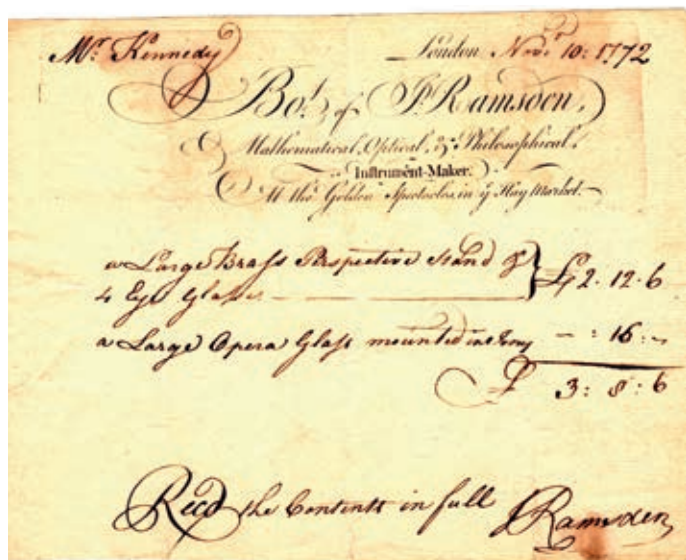 Mr. Kennedy London Novr. 10: 1772
Bot. of J. Ramsden,
Mathematical, Optical, & Philosophical,
Instrument-Maker.
At the Golden Spectacles, in ye Hay Market.
a Large Brass Perspective Stand &
4 Eye Glasses £2. 12. 6
a Large Opera Glass mounted in Ivory — : 16 : —
£ 3: 8: 6
Recd the Contents in full JRamsden